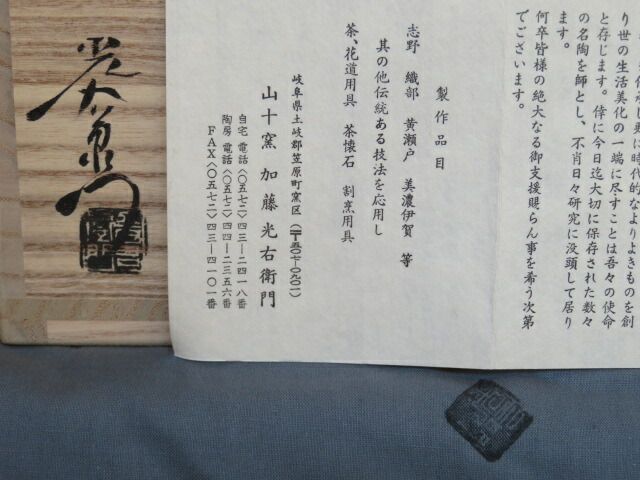 り世の生活美化の一端に尽すことは吾々の使命
と存じます。倖に今日迄大切に保存された数々
の名陶を師とし、不肖日々研究に没頭して居り
ます。
何卒皆様の絶大なる御支援賜らん事を希う次第
でございます。
製作品目
志野 織部 黄瀬戸 美濃伊賀 等
其の他伝統ある技法を応用し
茶、花道用具 茶懐石 割烹用具
岐阜県土岐郡笠原町窯区（〒五〇七-〇九〇一）
山十窯 加藤光右衛門
自宅 電話〈〇五七二〉四三-二四一八番
陶房 電話〈〇五七二〉四四-二三五六番
FAX〈〇五七二〉四三-四一〇一番